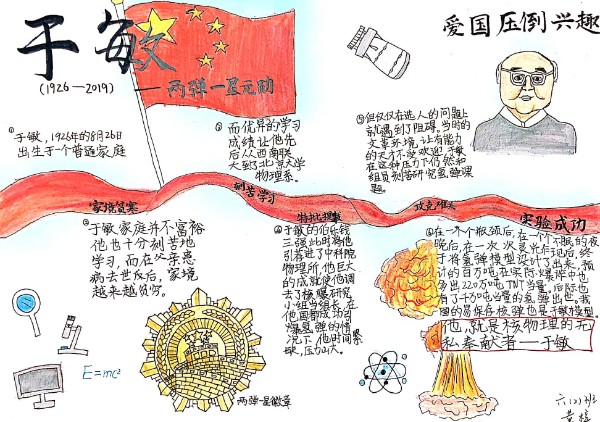 于敏
(1926—2019)
——两弹一星元勋
爱国压倒兴趣
①于敏,1926年的8月26日
出生于一个普通家庭
③而优异的学习
成绩让他先
后从西南联
大到了北京大学
物理系。
⑤但仅仅在选人的问题上
就遇到了阻碍,当时的
文革环境,让有能力
的天才不受欢迎,于敏
在这种压力下仍然和
组员刻苦研究氢弹课
题。
家境贫寒
刻苦学习
特批提拔
攻克难关
实验成功
②于敏家庭并不富裕
他也十分刻苦地
学习,而在父亲患
病去世后后,家境
越来越贫穷。
④于敏的伯乐钱
三强此时将他
引荐进了中科院
物理所,他巨大
的成就使他调
去了核爆研究
小组当组长,在
他国都成功引
爆氢弹的情
况下,他时间紧
缺,压力山大。
⑥在一个个瓶颈后,在一个个不眠的夜
晚后,在一次次灵光后现后,终
于将氢弹模型设计了出来,预
计的百万吨在实际爆炸中也
多出220万吨TNT当量,后际也
有了千万吨当量的氢弹出世,我
国的易保存核弹也是于敏模型。
他,就是核物理的无
私奉献者——于敏
E=mc²
两弹一星徽章
六(2)班